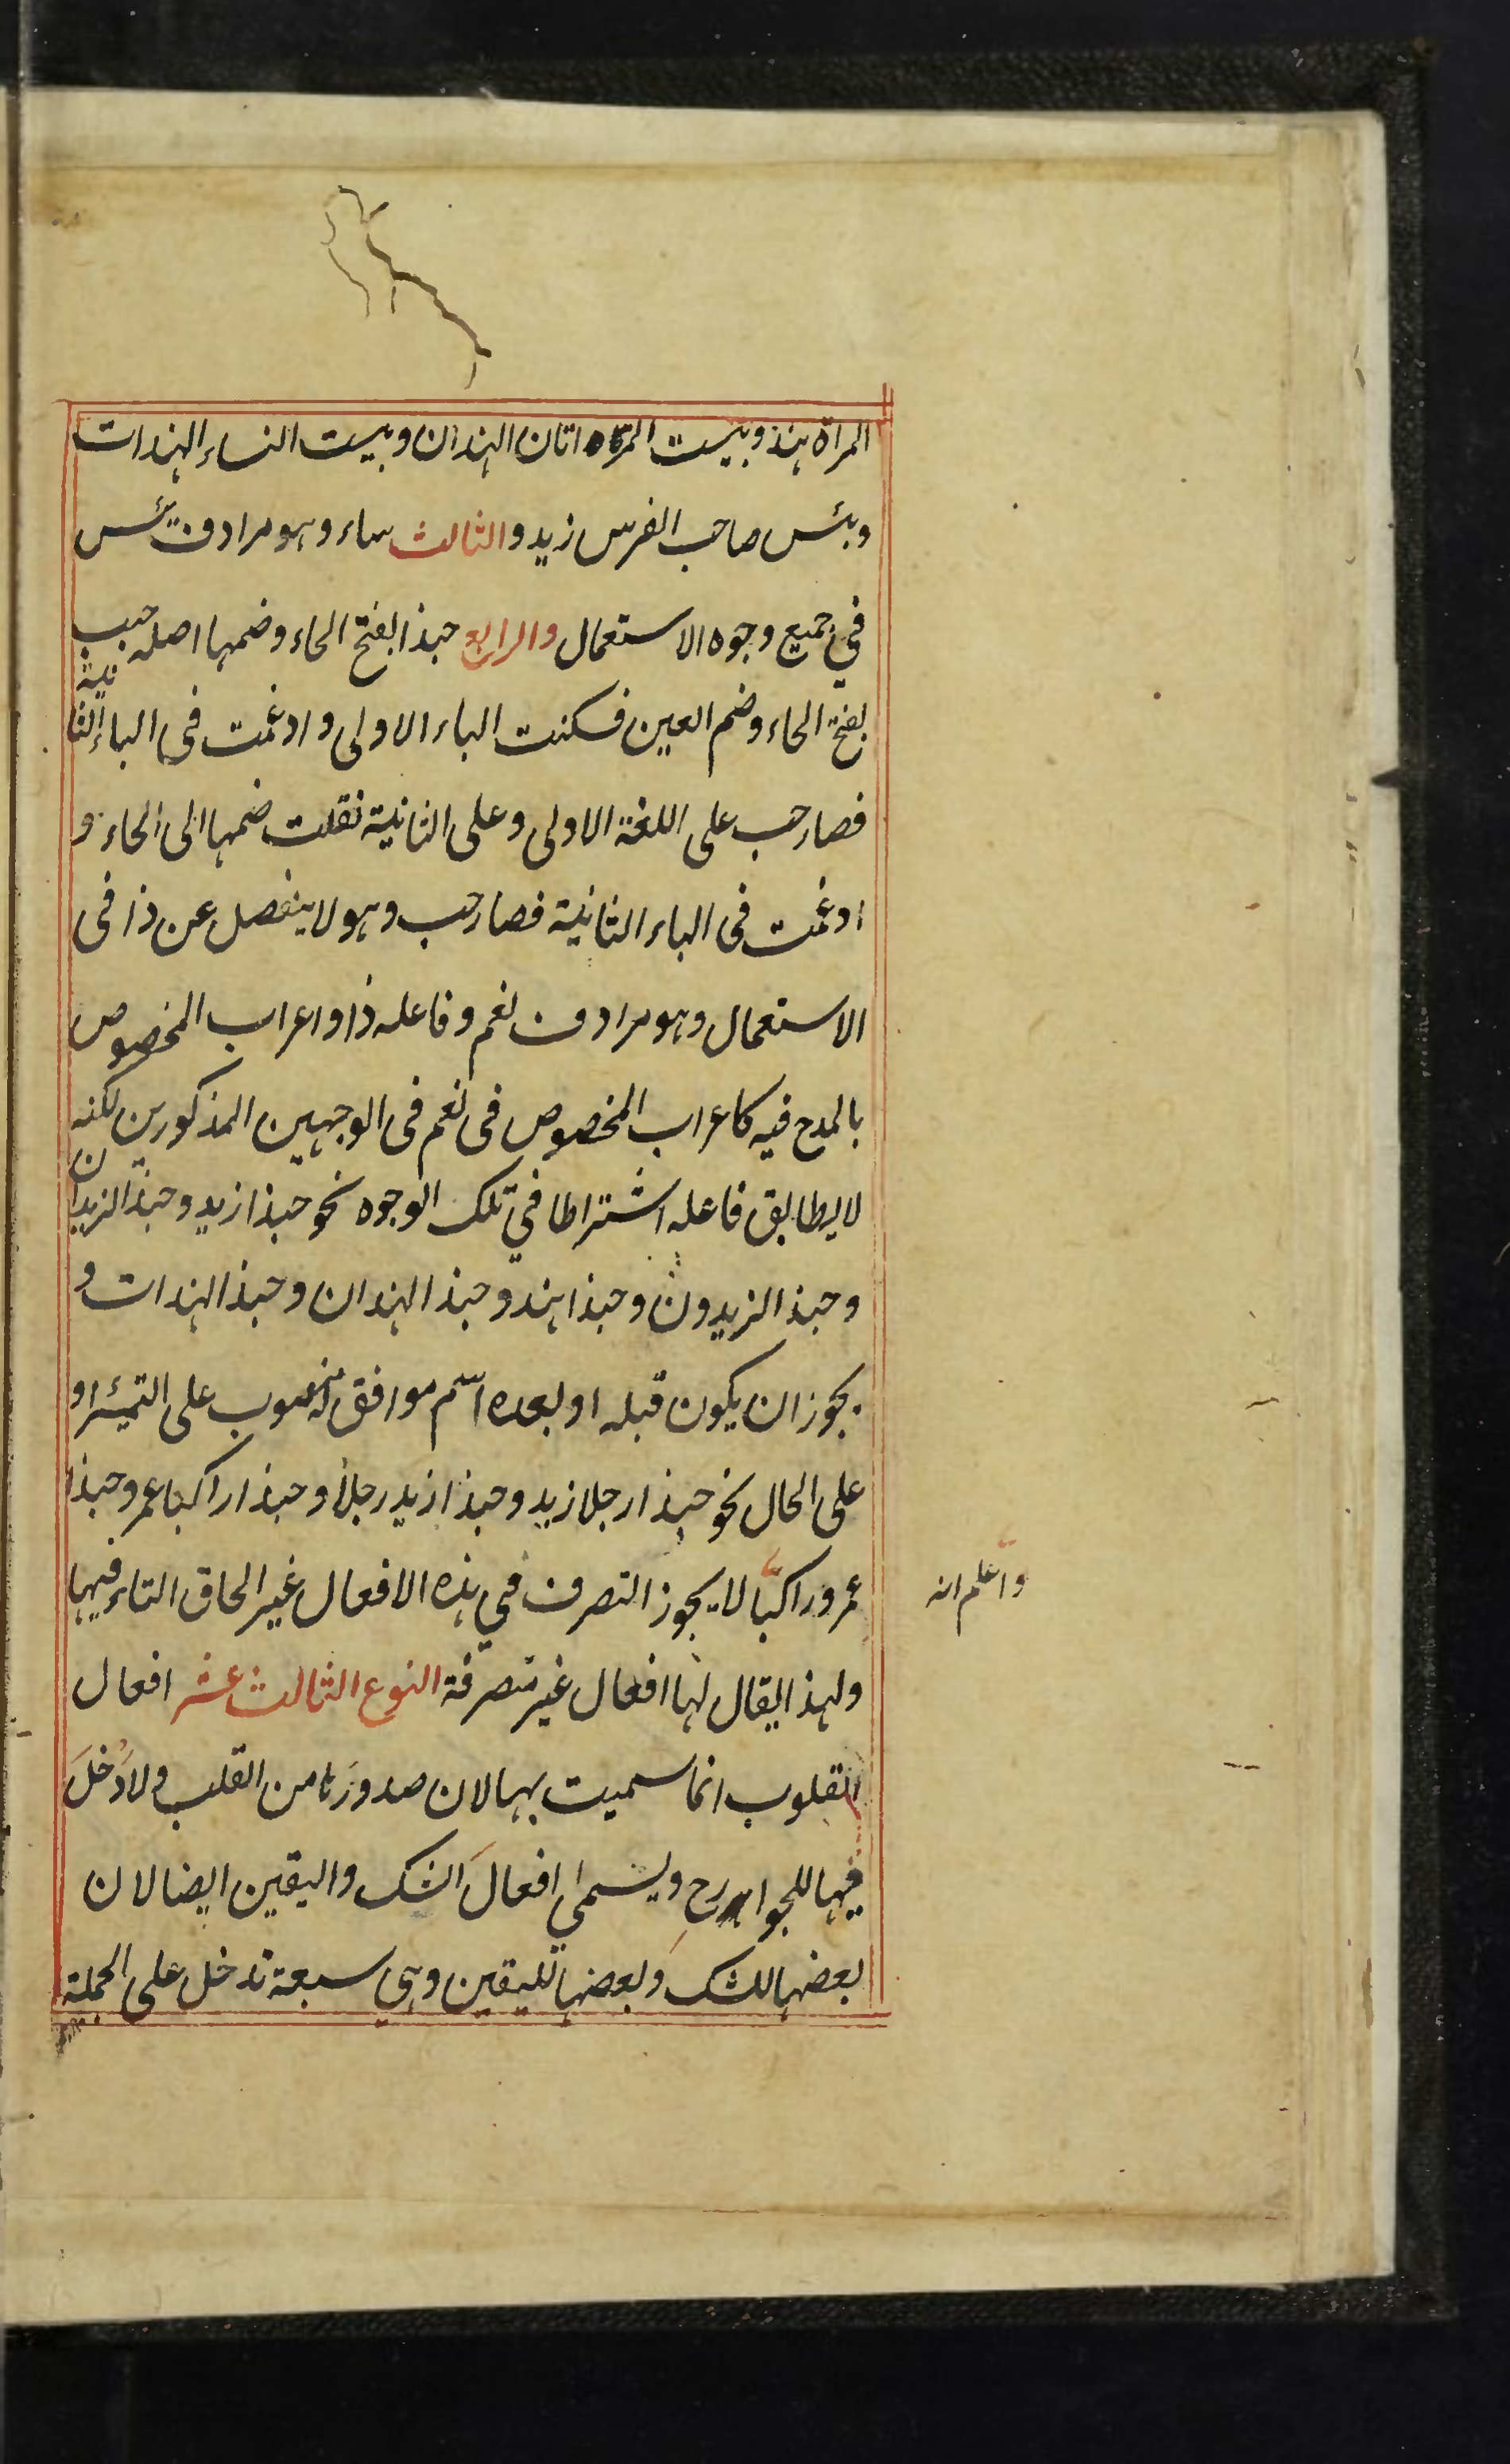 المراة هند وبیست المراتان الهندان وبیست النساء الهندات
وبئس صاحب الفرس زید والثالث ساء وهو مرادف بئس
فی جمیع وجوه الاستعمال والرابع حبذا بفتح الحاء وضمها اصله حبب
بفتح الحاء وضم العین فسکنت الباء الاولی وادغمت فی الباء الثانیة
فصار حب علی اللغة الاولی وعلی الثانیة نقلت ضمها الی الحاء و
ادغمت فی الباء الثانیة فصار حب وهو لا ینفصل عن ذا فی
الاستعمال وهو مرادف لنعم وفاعله ذا واعراب المخصوص
بالمدح فیه کاعراب المخصوص فی نعم فی الوجهین المذکورین لکنه
لا یطابق فاعله اشتراطا فی تلک الوجوه نحو حبذا زید وحبذا الزیدان
وحبذ الزیدون وحبذا هند وحبذ الهندان وحبذ الهندات و
یجوز ان یکون قبله او بعده اسم موافق له منصوب علی التمیز او
علی الحال نحو حبذا رجلا زید وحبذا زید رجلاً وحبذا راکبا عمر وحبذا
عمرو راکبًا لا یجوز التصرف فی هذه الافعال غیر الحاق التاء فیها
واعلم انه
ولهذا یقال لها افعال غیر متصرفة النوع الثالث عشر افعال
القلوب انما سمیت بها لان صدورَها من القلب ولا دَخلَ
فیها للجوارح ویسمی افعالَ الشک والیقین ایضا لان
بعضها للشک وبعضها للیقین وهی سبعة تدخل علی الجملة